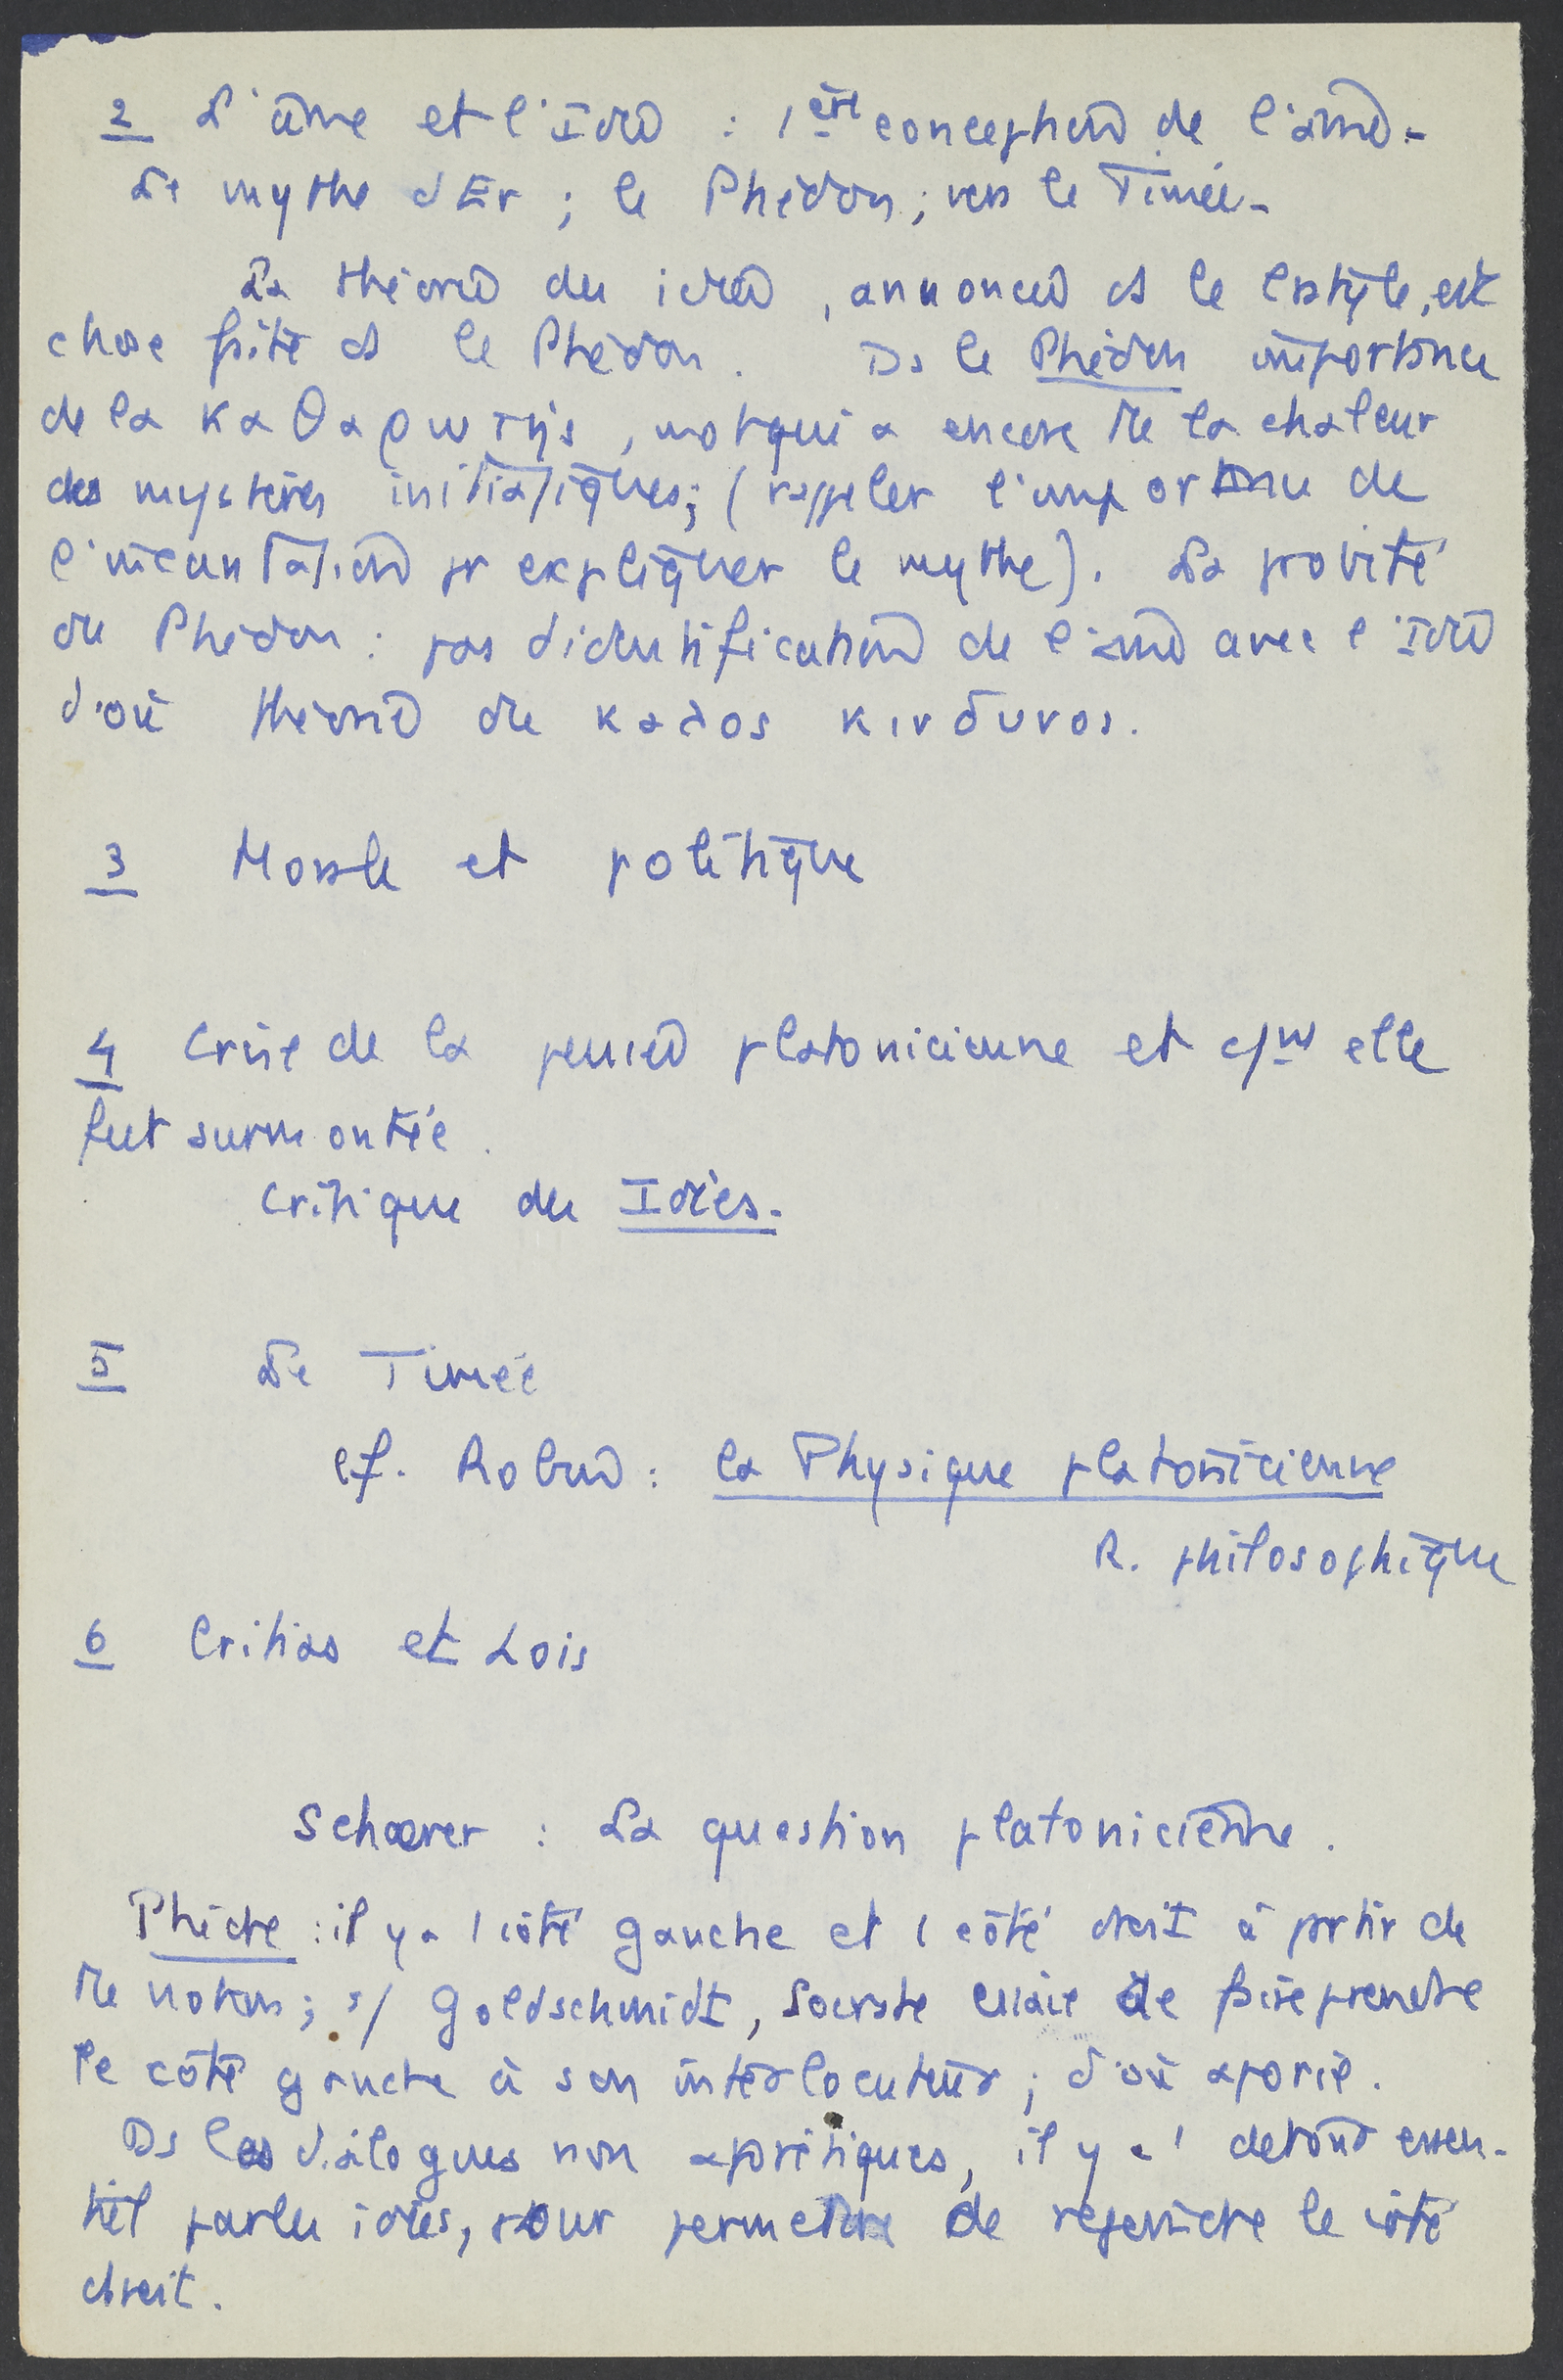 2 L'âme et l'Idée : 1ère conception de l'âme -
Le mythe d'Er ; le Phédon ; vers le Timée -
La théorie des idées, annoncée ds le Cratyle, est
chose faite ds le Phédon. Ds le Phédon importance
de la καθαρωτής, mot qui a encore de la chaleur
des mystères initiatiques ; (rappeler l'importance de
l'incantation pr expliquer le mythe). La
du Phédon : pas d'identification de l'âme avec l'Idée
d'où théorie du καλος κινδυνος.
3 Morale et politique
4 Crise de la pensée platonicienne et cmt elle
fut surmontée.
Critique des Idées.
5 Le Timée
cf. Robin : la Physique platonicienne
R. philosophique
6 Critias et Lois
Schaerer : La question platonicienne.
Phèdre : il y a 1 côté gauche et 1 côté droit à partir de
la notion ; s/ Goldschmidt, Socrate essaie de faire prendre
le côté gauche à son interlocuteur ; d'où aporie.
Ds les dialogues non aporétiques, il y a 1 détour essen-
tiel par les idées, pour permettre de reprendre le côté
droit.